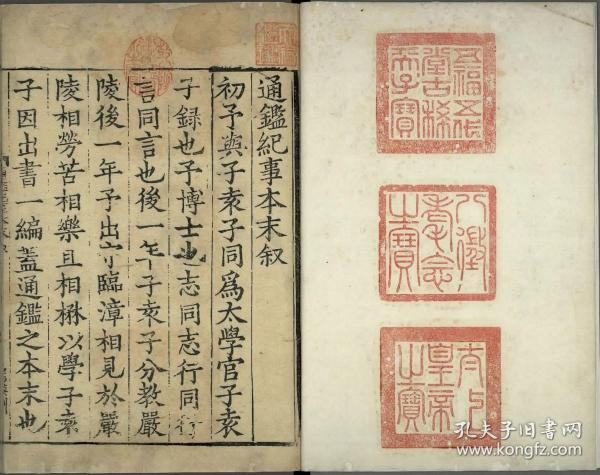 五福五代
堂古稀
天子寶
八徵
耄念
之寶
太上
皇帝
之寶
通鑑紀事本末叙
初予與子袁子同爲太學官子袁
子録也予博士也志同志行同行
言同言也後一年子袁子分教嚴
陵後一年予出守臨漳相見於嚴
陵相勞苦相樂且相楙以學子袁
子因出書一編蓋通鑑之本末也
孔夫子旧书网
www.kongfz.com